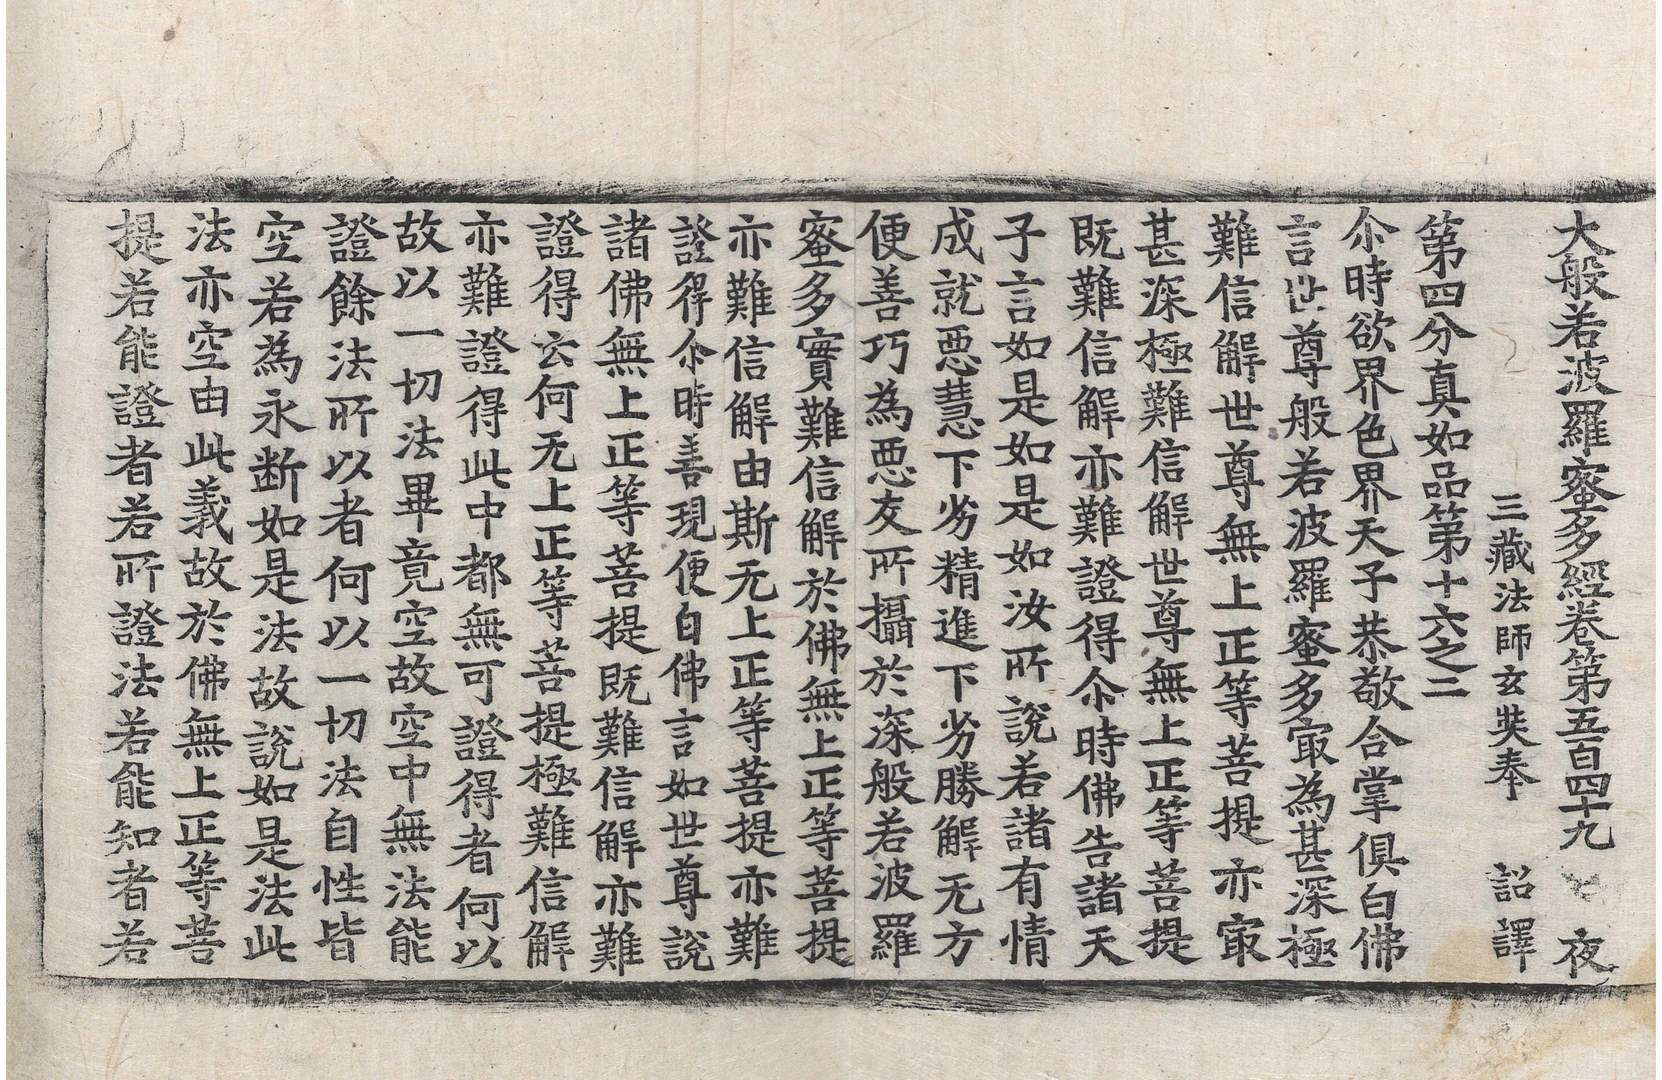 大般若波羅蜜多經卷第五百四十九　夜
三藏法師玄奘奉　詔譯
第四分真如品第十六之二
尒時欲界色界天子恭敬合掌俱白佛
言世尊般若波羅蜜多㝡為甚深極
難信解世尊無上正等菩提亦㝡
甚深極難信解世尊無上正等菩提
既難信解亦難證得尒時佛告諸天
子言如是如是如汝所說若諸有情
成就惡慧下劣精進下劣勝解无方
便善巧為惡友所攝於深般若波羅
蜜多實難信解於佛無上正等菩提
亦難信解由斯无上正等菩提亦難
證得尒時善現便白佛言如世尊說
諸佛無上正等菩提既難信解亦難
證得云何无上正等菩提極難信解
亦難證得此中都無可證得者何以
故以一切法畢竟空故空中無法能
證餘法所以者何以一切法自性皆
空若為永断如是法故說如是法此
法亦空由此義故於佛無上正等菩
提若能證者若所證法若能知者若